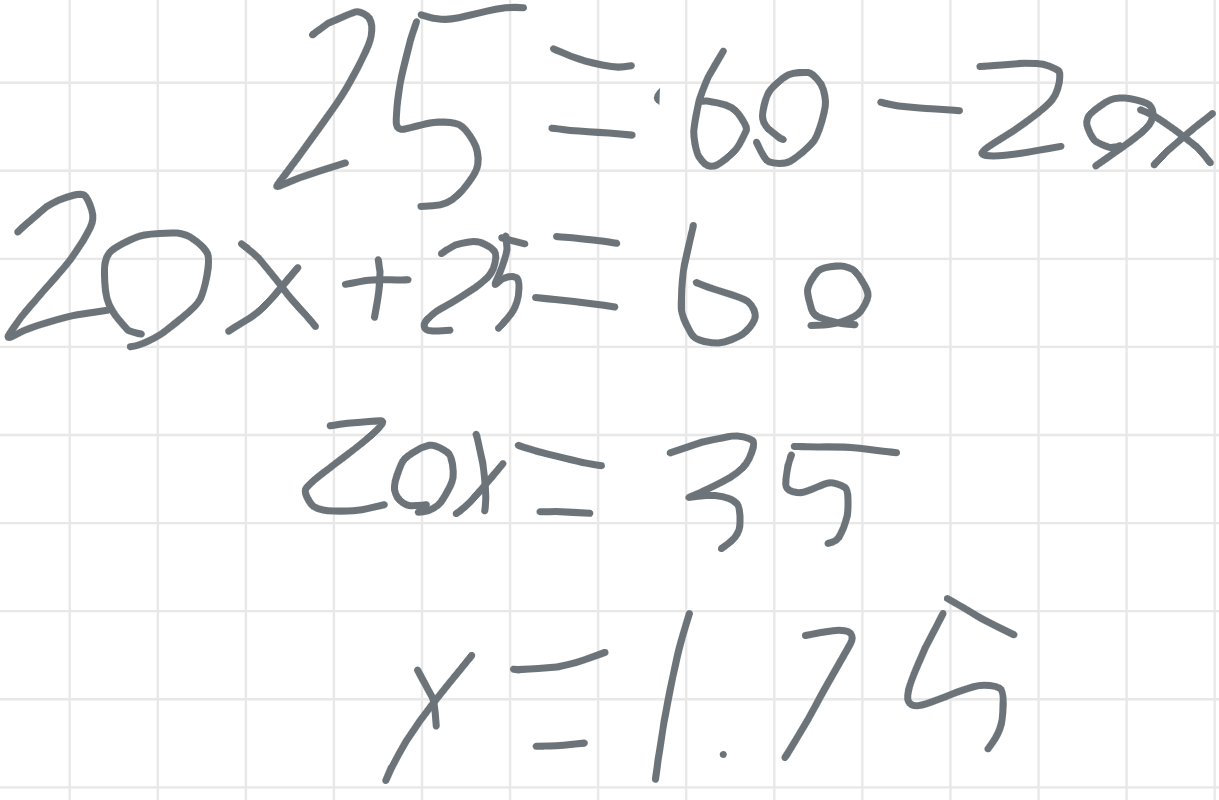 25 = 60 - 20x
20x + 25 = 60
20x = 35
x = 1.75